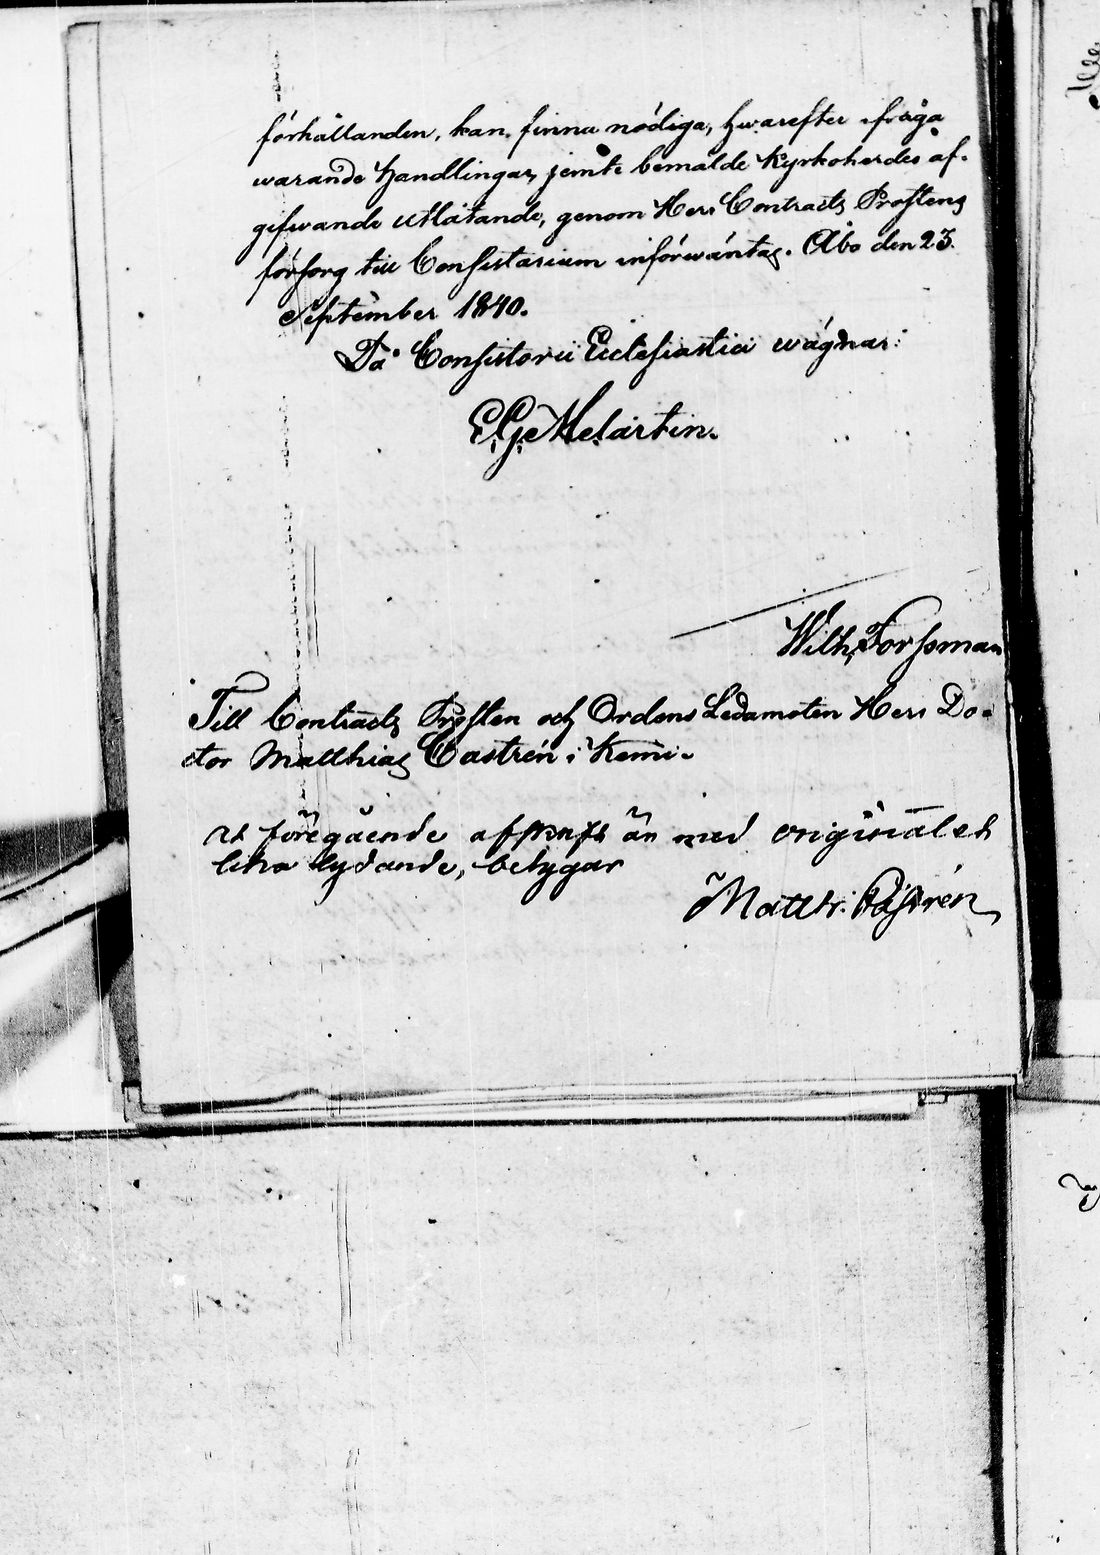 förhållanden, kan finna nödiga, hwarefter ifråga
warande handlingar, jemte bemälde Kyrkoherdes af-
gifwande utlåtande, genom Herr Contracts Prostens
försorg till Consistorium införwäntas. Åbo den 23
September 1840.
På Consistorii Ecclesiastici wägnar:
E. G. Melartin.
Wilh. Forssman
Till Contracts Prosten och Ordens Ledamoten Herr Do-
ctor Matthias Castrén i Kemi.
At föregående afskrift är med originalet
lika lydande, betygar
Matth. Castrén